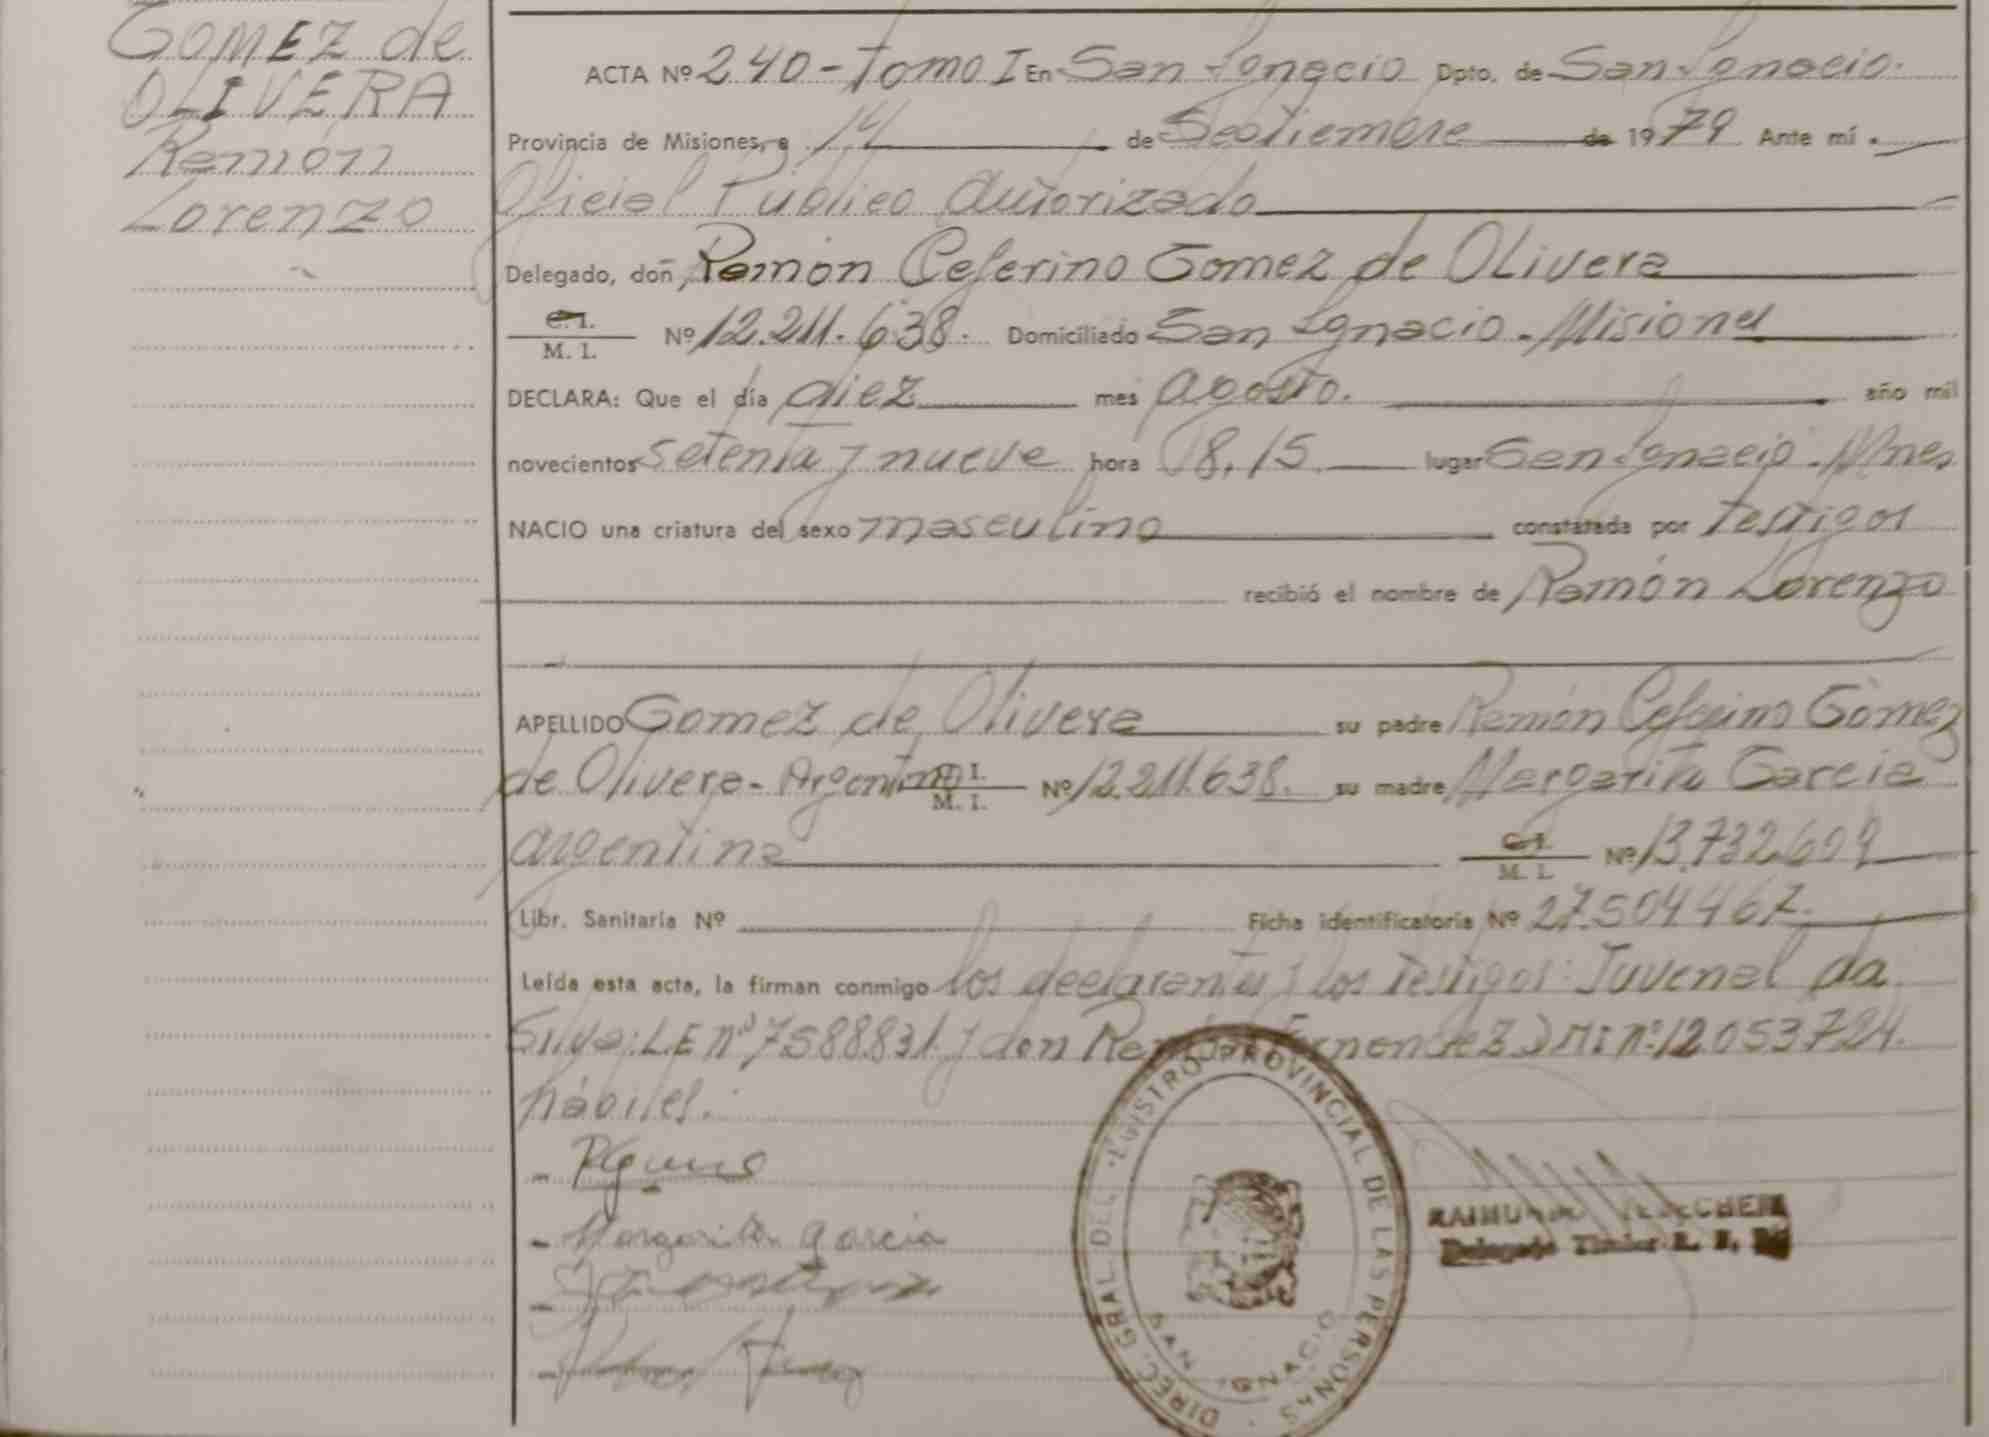 GOMEZ de
OLIVERA
Ramón
Lorenzo
ACTA Nº 240 - Tomo I En San Ignacio Dpto. de San Ignacio.
Provincia de Misiones, a 14 de Septiembre de 1979 Ante mí
Oficial Público Autorizado
Delegado, don Ramón Ceferino Gomez de Olivera
C. I.
M. I. Nº 12.211.638. Domiciliado San Ignacio - Misiones
DECLARA: Que el día diez mes agosto. año mil
novecientos setenta y nueve hora 08,15 lugar San Ignacio. Mnes
NACIO una criatura del sexo masculino constatada por testigos
recibió el nombre de Ramón Lorenzo
APELLIDO Gomez de Olivera su padre Ramón Ceferino Gómez
de Olivera - Argentino C. I. M. I. Nº 12.211.638. su madre Margarita Garcia
argentina C. I. M. I. Nº 13.732.609
Libr. Sanitaria Nº Ficha identificatoria Nº 27.504.467.
Leída esta acta, la firman conmigo los declarantes y los testigos: Juvenal da
Silva: L.E nº 7588831. y don Ramón Fernandez D M I nº: 12.053.724.
hábiles.
Margarita Garcia
DIREC. GRAL. DEL REGISTRO PROVINCIAL DE LAS PERSONAS
SAN IGNACIO
RAIMUNDO
Delegado Titular R. P.